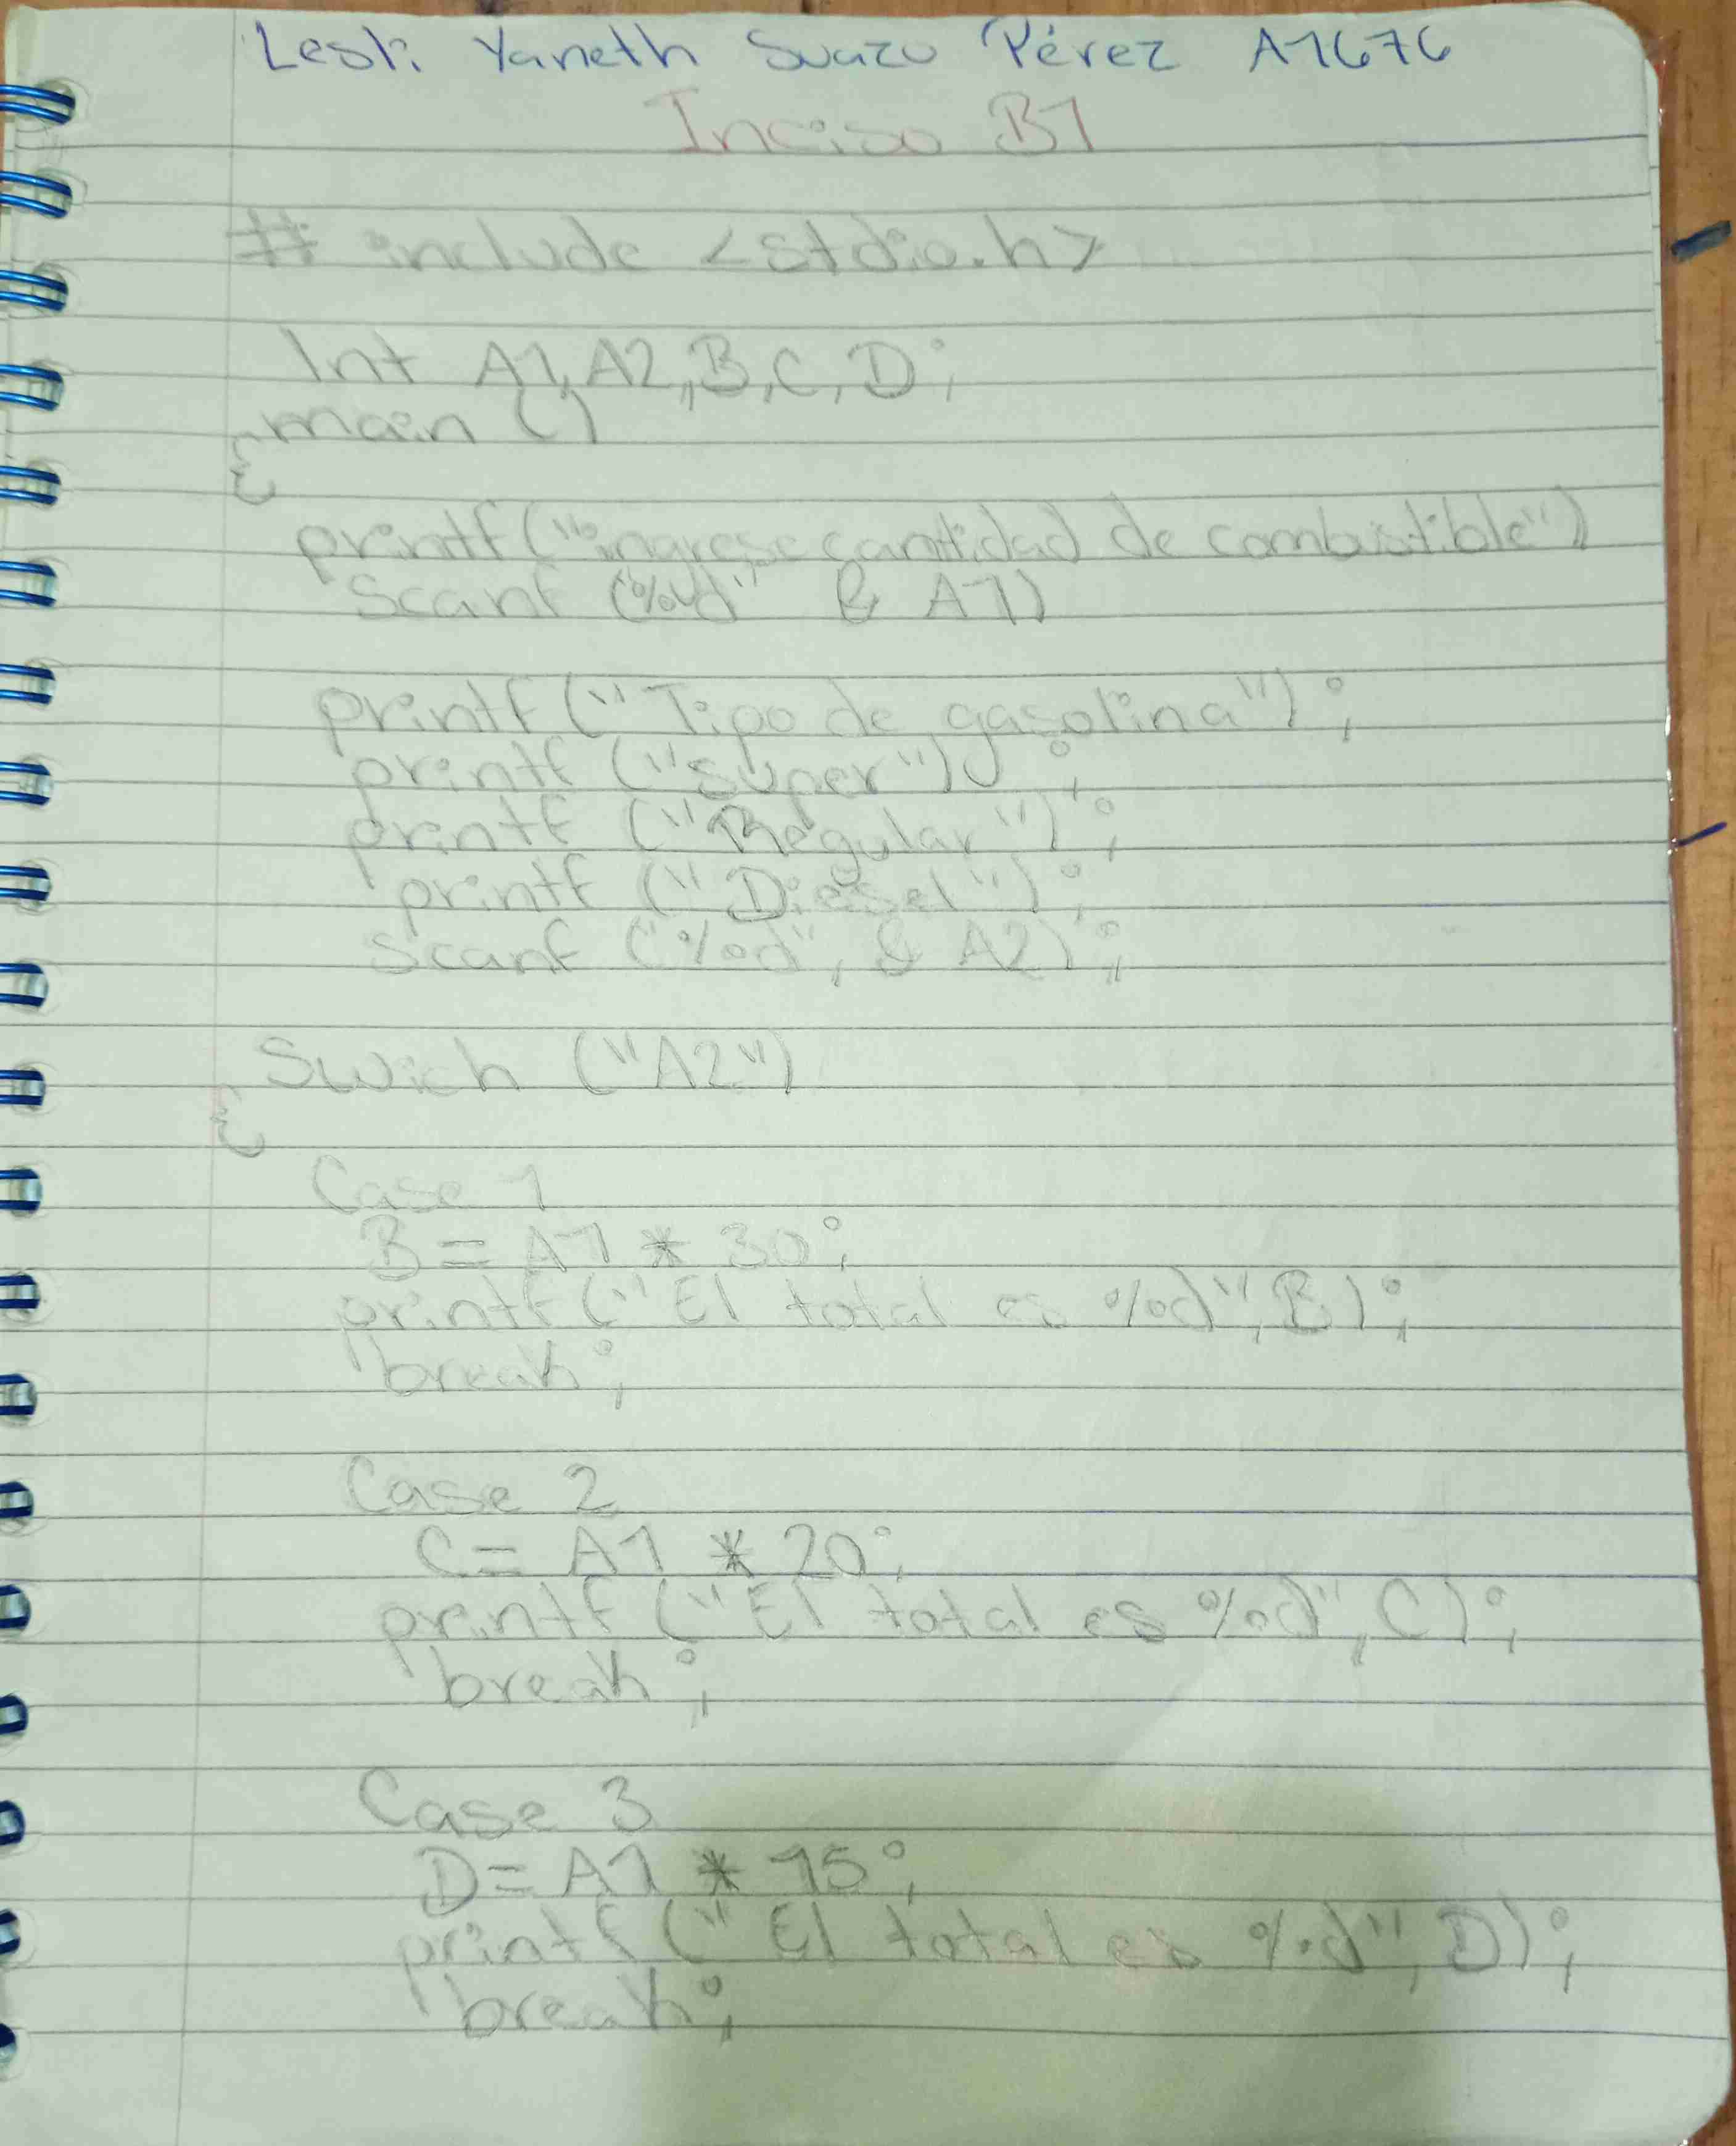 Lesli Yaneth Suazo Pérez A1676
Inciso B1
# include <stdio.h>
Int A1, A2, B, C, D;
main ()
{
printf ("ingrese cantidad de combustible")
Scanf ("%d" & A1)
printf ("Tipo de gasolina");
printf ("Super");
printf ("Regular");
printf ("Diesel");
Scanf ("%d", & A2);
Swich ("A2")
{
Case 1
B = A1 * 30;
printf ("El total es %d", B);
break;
Case 2
C = A1 * 20;
printf ("El total es %d", C);
break;
Case 3
D = A1 * 15;
printf (" El total es %d", D);
break;